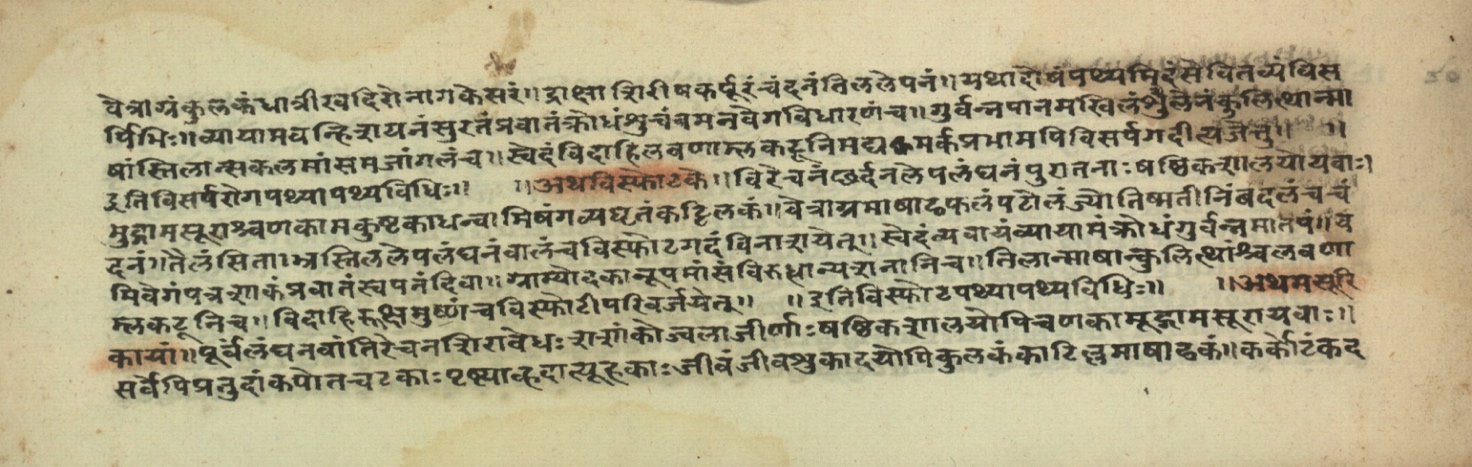 वेत्राग्रंकुलकंधात्रीखदिरोनागकेसरं॥द्राक्षाशिरीषकर्पूरंचंदनंतिललेपनं॥यथादोषंपथ्यमिदंसेवितव्यंविस
र्पिभिः॥व्यायाममवन्हिशयनंसुरतंप्रवातंक्रोधंशुचंवमनवेगविधारणंच॥गुर्वन्नपानमखिलंलशुनंकुलित्थान्मा
षांस्तिलान्सकलमांसमजांगलंच॥स्वेदंविदाहिलवणाम्लकटूनिमद्यमर्कप्रभामपिविसर्पगदीत्यजेत्तु॥ ॥
इतिविसर्परोगपथ्यापथ्यविधिः॥ ॥अथविस्फोटके॥विरेचनंछर्दनलेपलंघनंपुरातनाःषष्ठिकशालयोयवाः।
मुद्गामसूराश्चणकामकुष्टकाधन्वामिषंगव्यघृतंकट्टिलकं॥वेत्राग्रमाषाढफलंपटोलंज्योतिष्मतीनिंबदलंचचं
दनं॥तैलंसिताभ्रस्तिललेपलंघनंवालंचविस्फोटगदंविनाशयेत्॥स्वेदंव्यवायंव्यायामंक्रोधंगुर्वन्नमातपं॥व
मिवेगंपत्रशाकंप्रवातंस्वपनंदिवा॥ग्राम्योदकानूपमांसंविरुधान्यशनानिच॥तिलान्माषान्कुलित्थांश्चलवणा
म्लकटूनिच॥विदाहिरूक्षमुष्णंचविस्फोटीपरिवर्जयेत्॥ ॥इतिविस्फोटपथ्यापथ्यविधिः॥ ॥अथमसूरि
कायां॥पूर्वंलंघनवांतिरेचनशिरावेधःशशांकोज्वलाजीर्णाःषष्ठिकशालयोपिचणकामूद्गामसूरायवाः॥
सर्वेपिप्रतुदांकपोतचटकाःदात्यूहकाःजीवंजीवशुकादयोपिकुलकंकाटिल्लमाषाढकं॥कर्कोटंकद